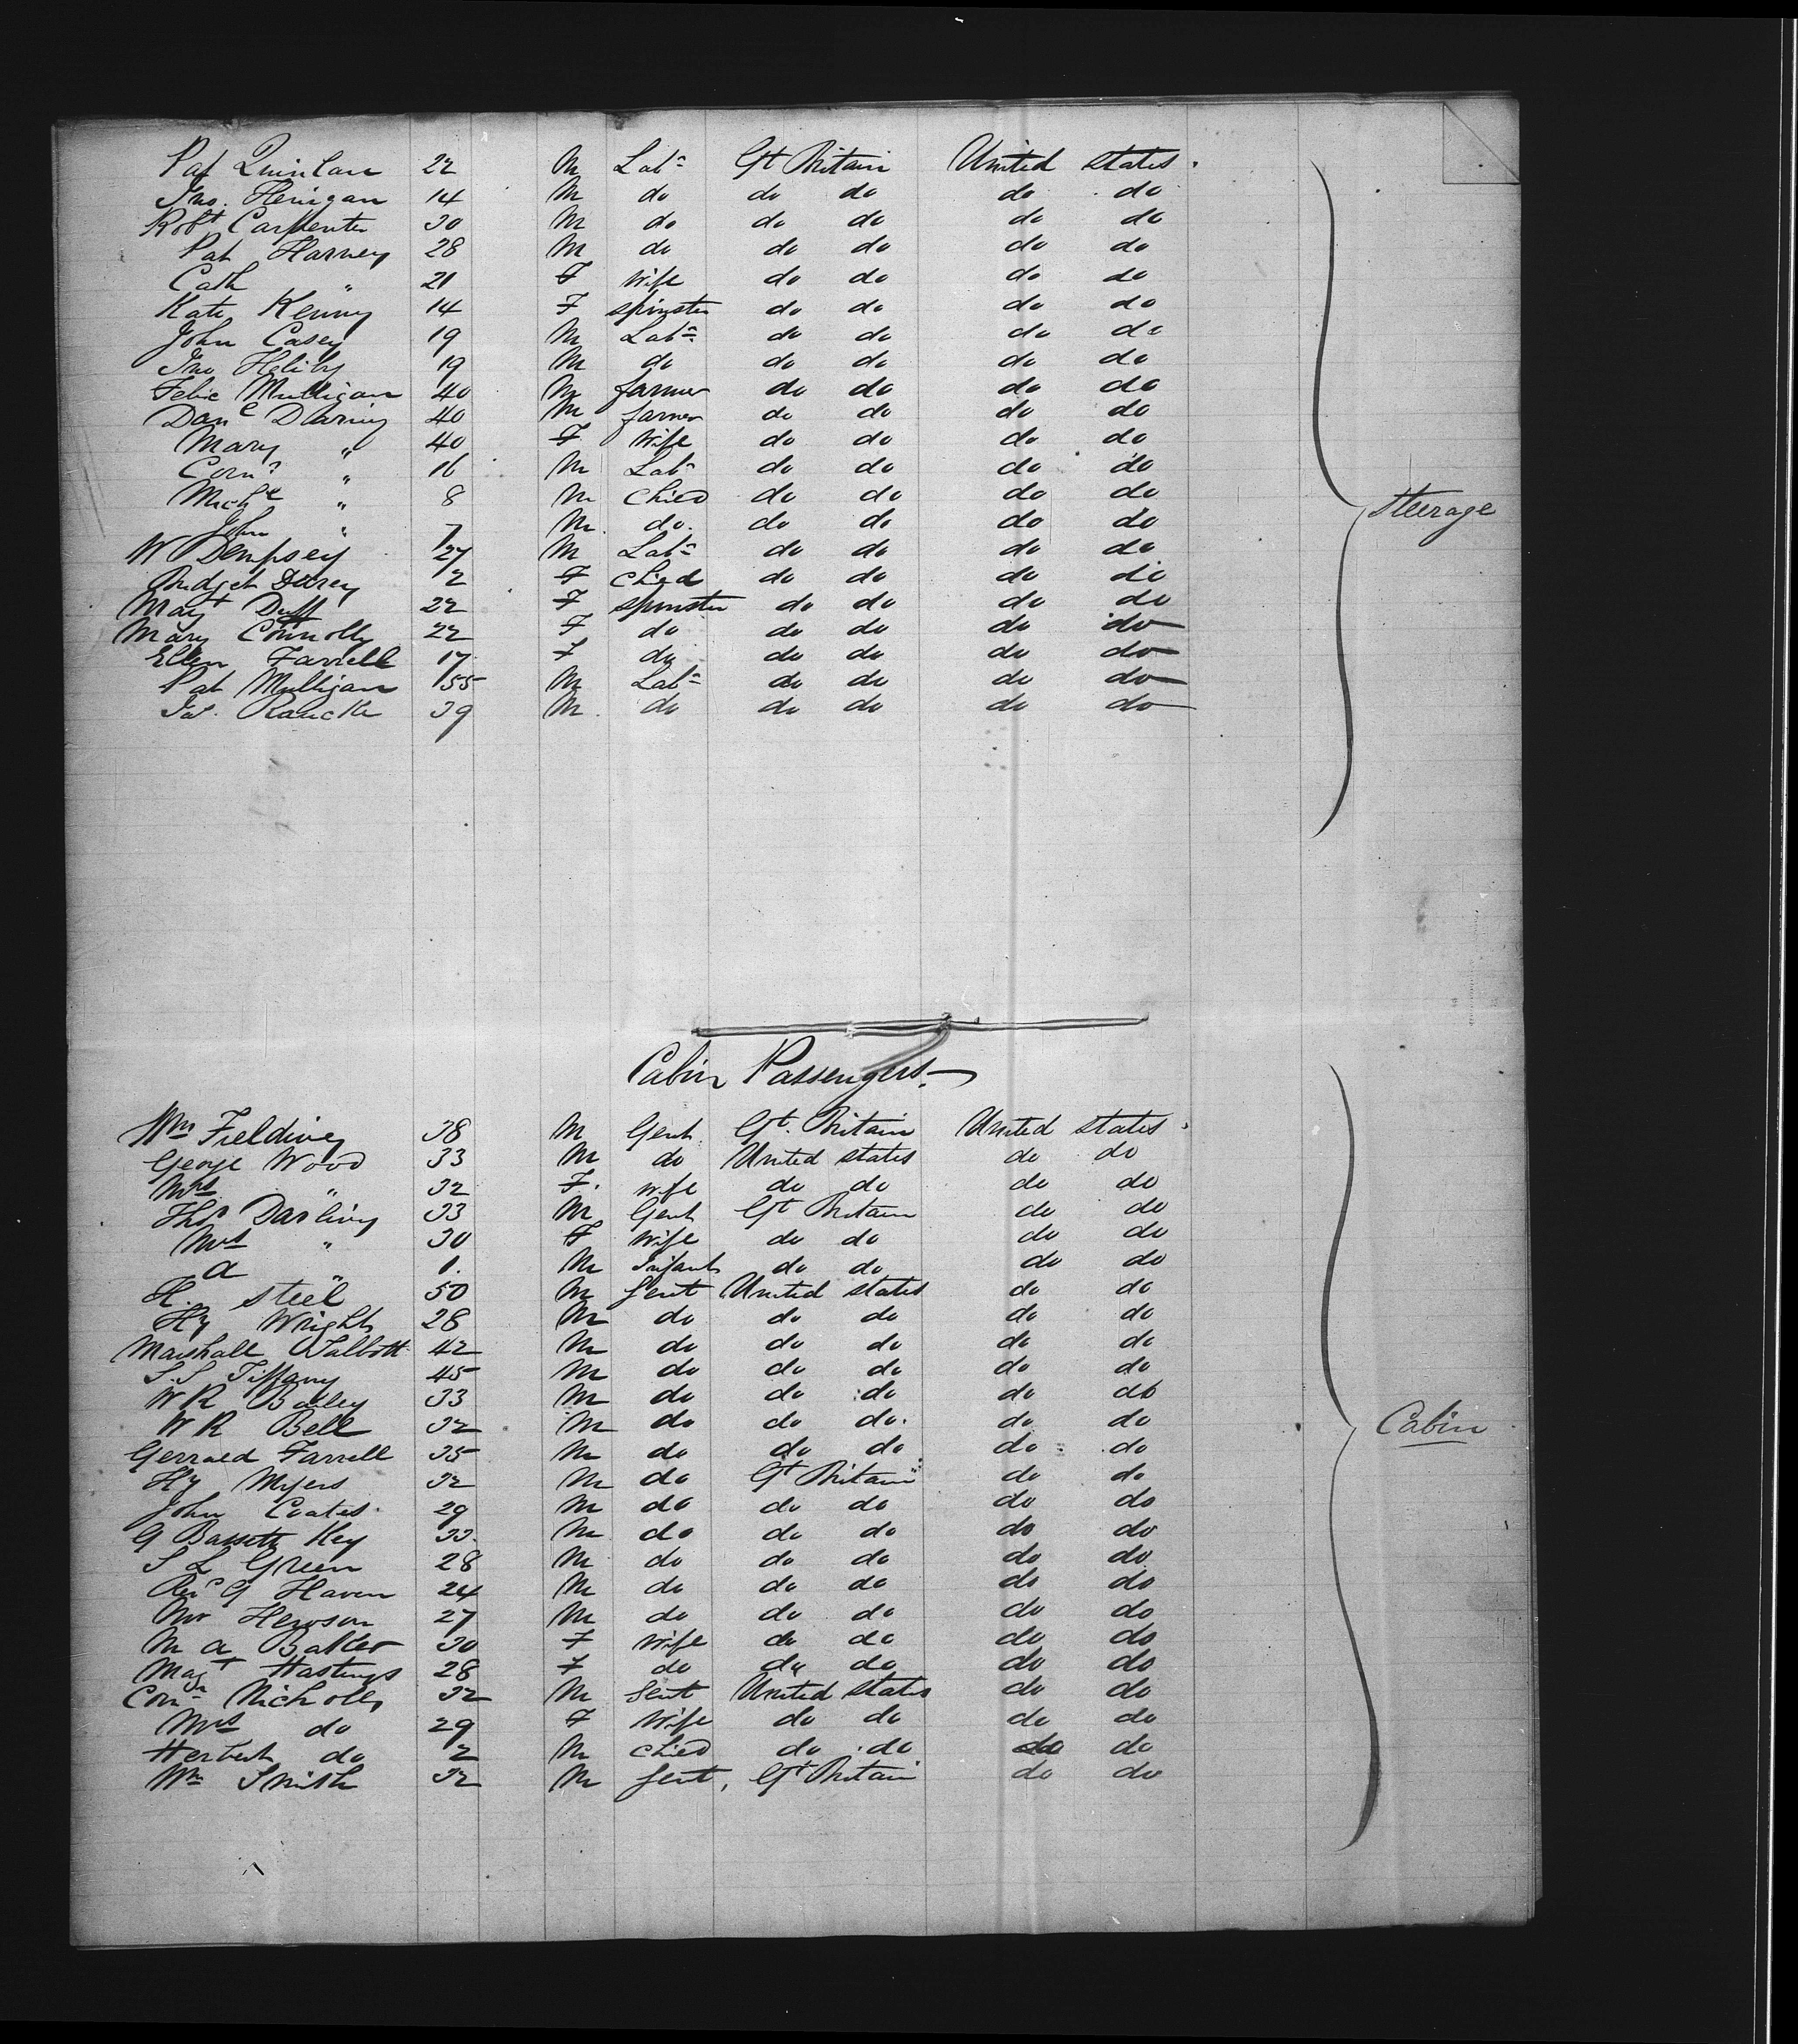 Pat Quinlan 22 M Labr Gt Britain United States.
Jno. Henigan 14 M do do do do do
Robt Carpenter 30 M do do do do do
Pat Harvey 28 M do do do do do
Cath " 21 F wife do do do do
Kate Kenny 14 F spinster do do do do
John Casey 19 M Labr do do do do
Jno 19 M do do do do do
Felix Mulligan 40 M farmer do do do do
Danl 40 M farmer do do do do
Mary " 40 F Wife do do do do
Corns " 16 M Labr do do do do
Michl " 8 M Child do do do do
John " 7 M do. do do do do
W Dempsey 27 M Labr do do do do
Bridget 2 F child do do do do
Magt Duff 22 F spinster do do do do
Mary Connolly 22 F do do do do do
Ellen Farrell 17 F do do do do do
Pat Mulligan 55 M Labr do do do do
Jas. 39 M do do do do do
Steerage
Cabin Passengers.
Wm Fielding 38 M Gent Gt. Britain United States.
George Wood 33 M do United States do do
Mrs " 32 F. wife do do do do
Thos Darling 33 M Gent Gt Britain do do
Mrs " 30 F Wife do do do do
a " 1. M Infant do do do do
H. Steel 50 M Gent United States do do
Hy Wright 28 M do do do do do
Marshall Talbott 42 M do do do do do
S.S Tiffany 45 M do do do do do
W R Bailey 33 M do do do do do
W R Bell 32 M do do do. do do
Gerrald Farrell 35 M do do do do do
Hy Myers 32 M do Gt Britain do do
John Coates 29 M do do do do do
G Bassett Key 33 M do do do do do
S L Green 28 M do do do do do
Revd G Haven 24 M do do do do do
Mr Hewson 27 M do do do do do
M a Baker 30 F Wife do do do do
Magt Hastings 28 F do do do do do
Comr Nicholls 32 M Gent United States do do
Mrs do 29 F Wife do do do do
Herbert do 2 M child do do do do
Wm Smith 32 M Gent, Gt Britain do do
Cabin